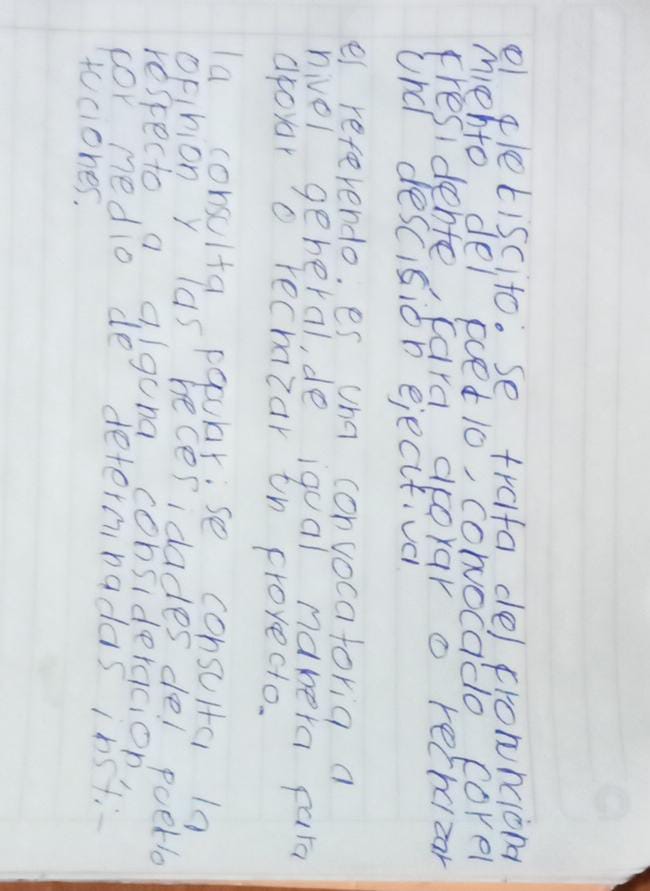 el plebiscito. se trata del pronuncia
miento del pueblo, convocado por el
presidente, para apoyar o rechazar
una descisión ejecutiva
el referendo. es una convocatoria a
nivel general, de igual manera para
apoyar o rechazar un proyecto.
la consulta popular. se consulta la
opinión y las necesidades del pueblo
respecto a alguna consideración
por medio de determinadas insti-
tuciones.